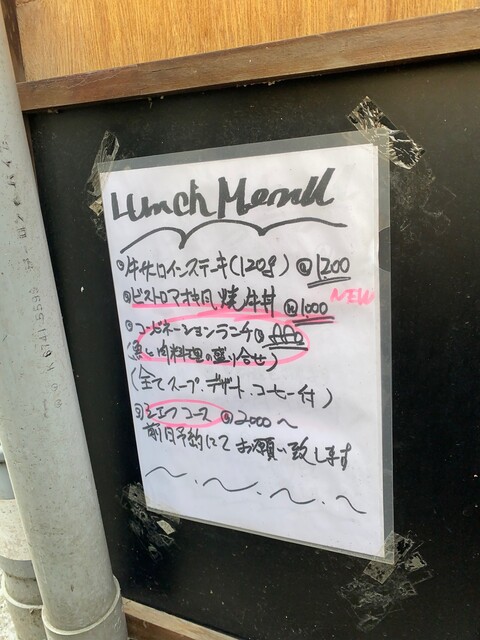 Lunch Menu
牛サーロインステーキ(120g) @1200
ビストロマオキ風 焼牛丼 @1,000 NEW
コンビネーションランチ@
(魚と肉料理の盛り合せ)
(全てスープ・デザート・コーヒー付)
シェフコース @2,000〜
前日予約にてお願い致します